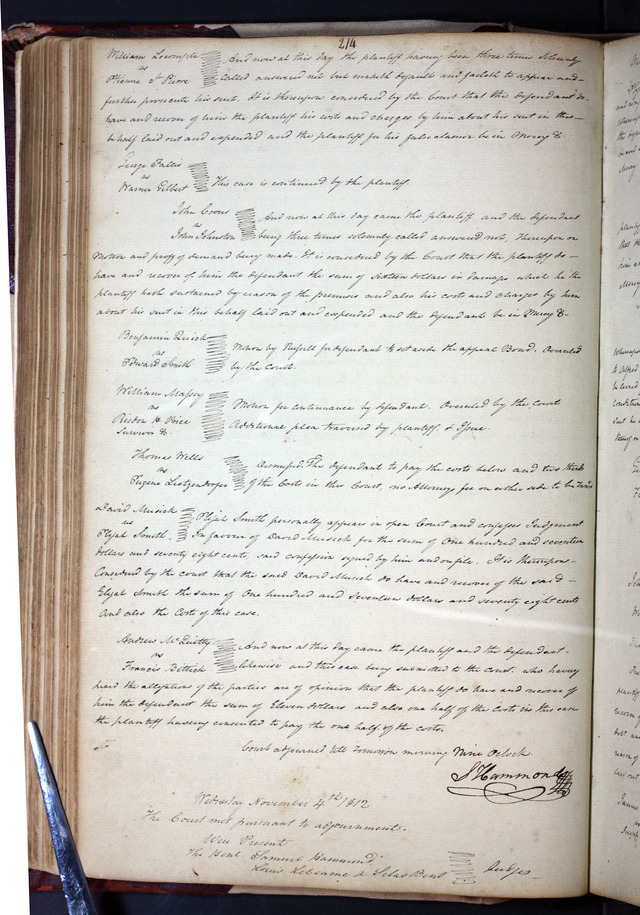 214
William Lecompte
vs
Etienne St. Pierre
And now at this day the plantiff having been three times Solemnly
called answered not but maketh default and faileth to appear and
further prosecute his suit. It is thereupon considered by the Court that the defendant do
have and recover of him the plantiff his costs and charges by him about his suit in this
behalf laid out and expended and the plantiff for his false clamor be in Mercy &c
George Fallis
vs
Warner Gilbert
This case is continued by the plantiff.
John Coons
vs
John Johnston
And now at this day came the plantiff and the defendant
being three times solemnly called answered not, Thereupon on
Motion and proff of demand being made. It is considered by the Court that the plantiff do
have and recover of him the defendant the sum of Sixteen dollars in damages which he the
plantiff hath sustained by reason of the premises and also his costs and charges by him
about his suit in this behalf laid out and expended and the defendant be in Mercy &c
Benjamin Quick
vs
Edward Smith
Motion by Russell for defendant to set aside the appeal Bond. Overuled
by the Court.
William Massey
vs
Risdon H. Price
Survivor &c.
Motion for continuance by defendant. Overuled by the Court
Additional plea traversed by plantiff. & Issue.
Thomas Wells
vs
Eugene Leitzendorfer
Dismissed. The defendant to pay the costs below and two thirds
of the Costs in this Court, no Attorneys fee on either side to be taxed
David Musick
vs
Elijah Smith.
Elijah Smith personally appears in open Court and confesses Judgement
In favour of David Musick for the sum of One hundred and seventeen
dollars and seventy eight cents, said confession signed by him and on file. It is thereupon
Considered by the court that the said David Musick do have and recover of the said
Elijah Smith the sum of One hundred and Seventeen dollars and seventy eight cents
and also the Costs of this case.
Andrew McQuitty
vs
Francis Bittick
And now at this day came the plantiff and the defendant
likewise and this case being submitted to the Court. who having
heard the allegations of the parties are of opinion that the plantiff do have and recover of
him the defendant the sum of Eleven dollars and also one half of the Costs in this case
the plantiff having consented to pay the one half of the costs.
Court adjourned till Tomorrow morning Nine Oclock
S Hammond
Wednesday November 4th 1812
The Court met pursuant to adjournment.
Were Present
The Honl. Samuel Hammond
Louis Lebeaume & Silas Bent
Judges